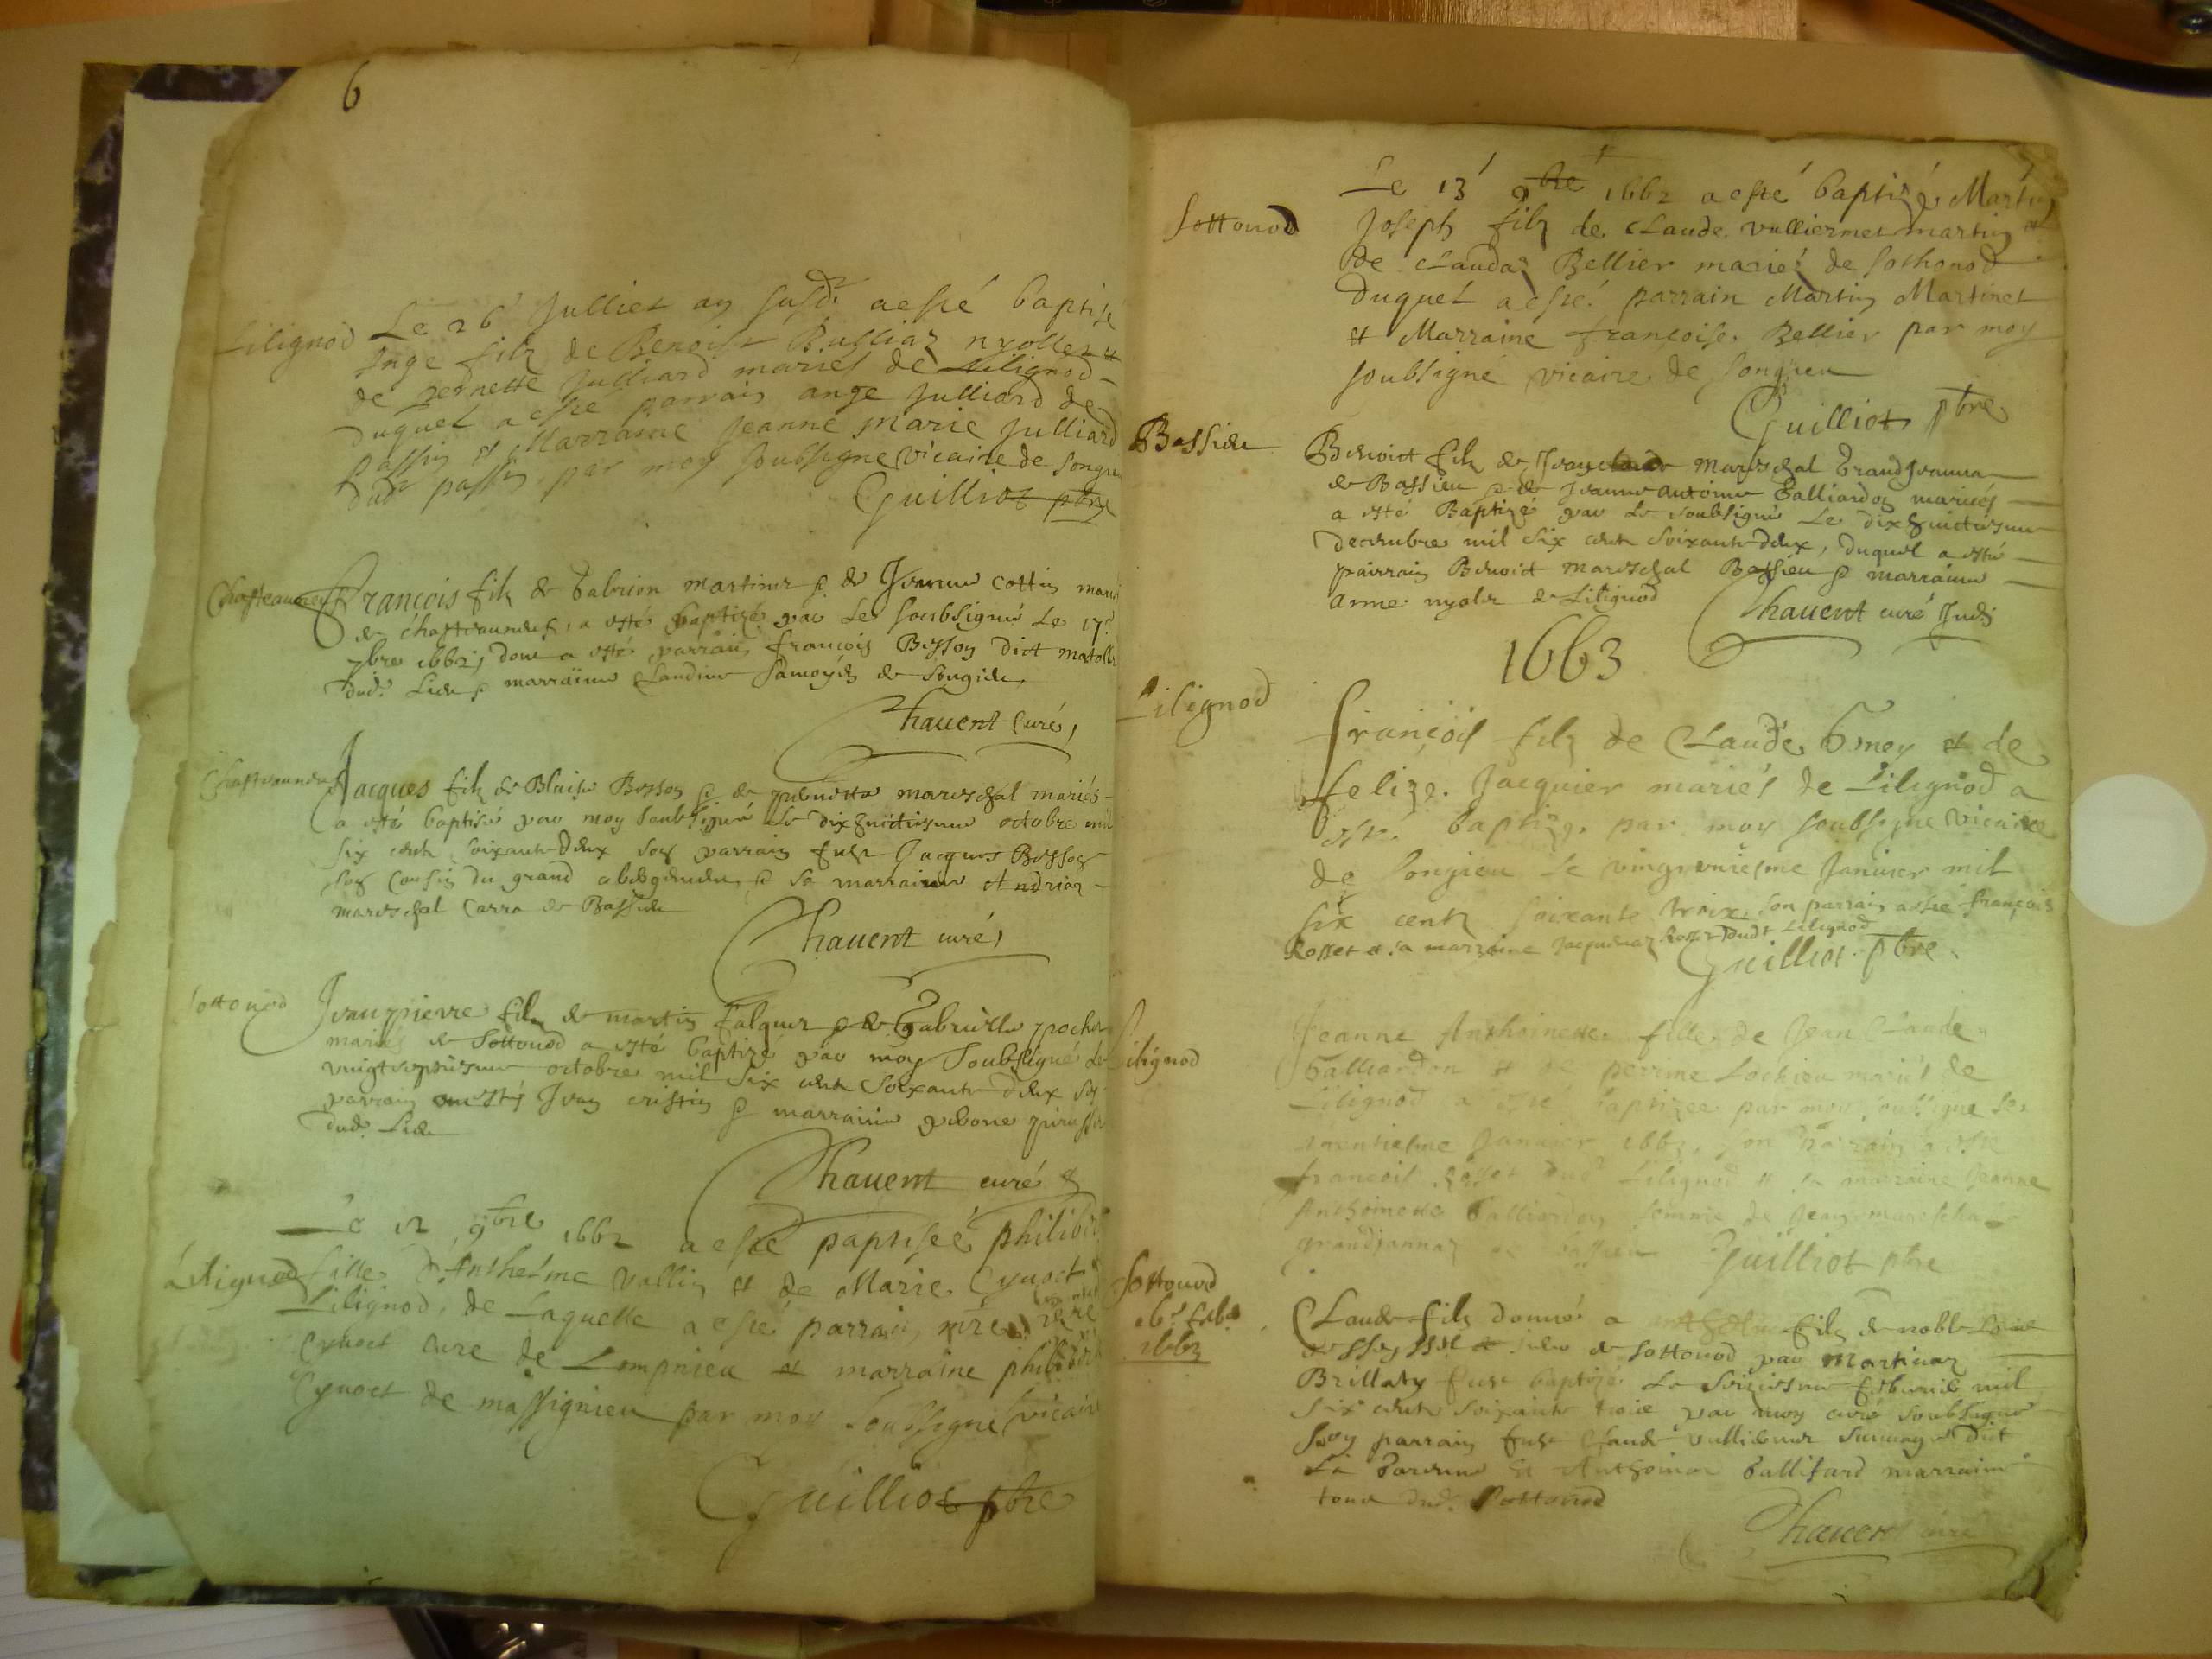 6
Lilignod
Le 26 Julliet an susd. a esté baptisé
Ange filz de Benoist Bulliaz nyollet et
de pernette Julliard mariés de Lilignod
duquel a esté parrain ange Julliard de
passin et Marraine Jeanne Marie Julliard
dud. passin par moy soubsigné vicaire de songieu
Guilliot pbre
Chasteauneuf
François filz de Gabrion martinet & de Jeanne Cottin
de chasteauneuf, a esté baptizé par le soubsigné le 17e
9bre 1662, dont a esté parrain françois Besson dict
dud. Lieu & marraine Claudine de Songieu
Chauent Curé
Chasteauneuf
Jacques filz de Blaise Besson & de pernette mareschal mariés
a esté baptisé par moy soubsigné le dixhuictiesme octobre mil
six cent soixante deux son parrain fust Jacques Besson
son Cousin du grand abbergement & sa marraine Andriaz
mareschal Carra de Bassieu
Chauent curé
Sottonod
Jeanpierre filz de martin falquet & de Gabrielle pochet
mariés de Sottonod a esté baptizé par moy Soubsigné le
octobre mil six cent soixante deux son
parrain Jean cristin & marraine
dud. Lieu
Chauent curé
Lilignod
Le 12 9bre 1662 a esté baptiseé philiberte
fille d'Anthelme Vallin et de Marie Cynoct
Lilignod, de Laquelle a esté parrain
Cynoct Curé de Lompnieu et marraine philiberte
Cynoct de massignieu par moy soussigné vicaire
Guilliot pbre
Sottonod
Le 13 9bre 1662 a esté baptizé Martin
Joseph filz de Claude vulliermet martin et
de Claudaz Bellier mariéz de Sothonod
Duquel a esté parrain Martin Martinet
et Marraine françoise Bellier par moy
soubsigné vicaire de songieu
Guilliot pbre
Bassieu
Benoict filz de Jeanclaude Mareschal Grandjeanna
de Bassieu & de Jeanne antoine Galliardon mariés
a esté Baptizé par le soubsigné Le dixhuictiesme
Decembre mil six cent soixante deux, duquel a esté
pairrain Benoict mareschal Bassieu & marraine
anne nyolet de Lilignod
Chauent curé
1663
Lilignod
françois filz de Claude Emey et de
felize Jacquier mariés de Lilignod a
esté baptizé par moy soubsigne vicaire
de songieu le vingtuniesme Janvier mil
six cent soixante troix, son parrain a esté françois
Rosset et sa marraine Rosset dudt Lilignod
Guilliot pbre
Lilignod
Jeanne Anthoinette fille de Jean Claude
Galliardon et de perrine Lochieu mariés de
Lilignod a esté baptizee par moy soussigne le
trentiesme Janvier 1663, son parrain a esté
françois Rosset dud. Lilignod et sa marraine Jeanne
Anthoinette Galliardon femme de Jean mareschal
grandjannaz de bassieu
Guilliot pbre
Sottonod
16e feb.
1663
Claude filz donné a filz de noble
de Sottonod par Martinaz
Brillaty fust baptizé Le seiziesme febvrier mil
six cent soixante troix par moy curé soubsigné
Son parrain fust Claude vulliermet dict
La et Anthoinaz Gallifard marraine
tous dud. Sottonod
Chauent curé